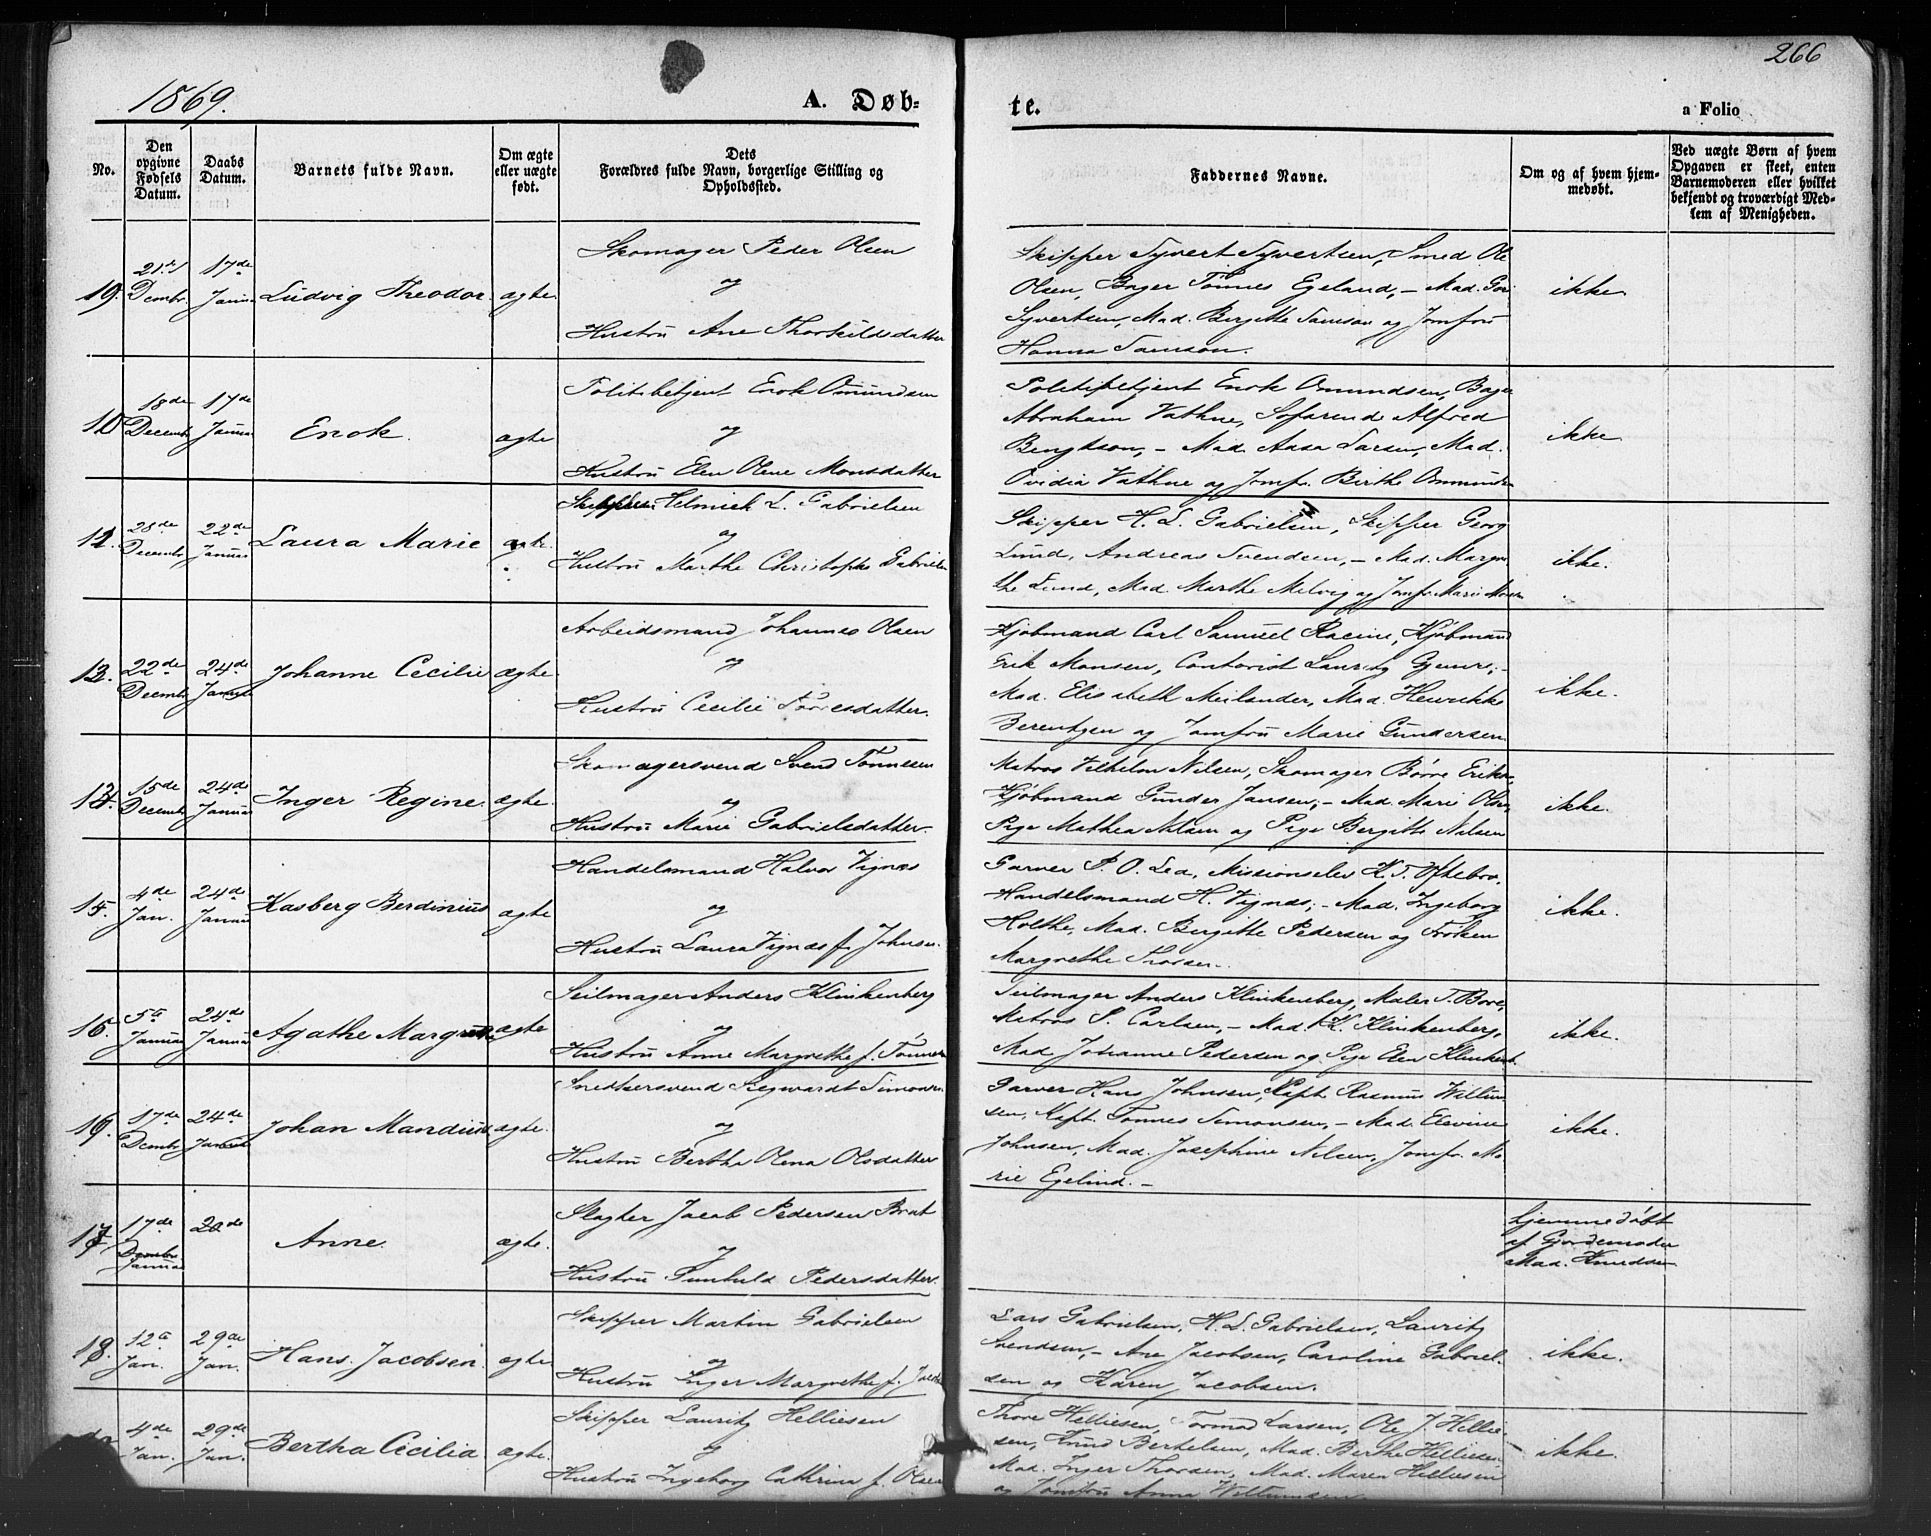 1869.
A. Døb-
te.
266
a Folio
No.
Den opgivne Fødsels Datum.
Daabs Datum.
Barnets fulde Navn.
Om ægte eller uægte født.
Dets Forældres fulde Navn, borgerlige Stilling og Opholdssted.
Faddernes Navne.
Om og af hvem hjemmedøbt.
Ved uægte Børn af hvem Opgaven er skeet, enten Barnemoderen eller hvilket bekjendt og troværdigt Medlem af Menigheden.
21de Decmbr. 17de Janu Ludvig Theodor. ægte. Skomager Peder Olsen
og
Hustru Ane Thorkildsdatter
Skipper Syvert Syvertsen, Smed Ole
Olsen, Bager Tønnes Egeland, - Mad.
Syvertsen, Mad. Bergitte Samson og Jomfru
Hanna Samson.
ikke
18de Decembr 17de Januar Enok. ægte Politibetjent Enok Omundsen
og
Hustru Elen Olene Monsdatter
Politibetjent Enok Ommundsen, Bager
Abraham Vathne, Alfred
Bengtson, - Mad. Aasa Larsen, Mad.
Ovidia Vathne og Jomfr. Birthe Ommunds
ikke
28de Decembr 22de Januar Laura Marie ægte. Skipper Helmich L. Gabrielsen
og
Hustru Marthe Christophe Gabriels
Skipper H. L. Gabrielsen, Skipper Georg
Lund, Andreas Svendsen, - Mad. Margre
the Lund, Mad. Marthe Melvig og Jomfr. Marie
ikke.
22de Decmbr 24de Januar Johanne Cecilie ægte. Arbeidsmand Johannes Olsen
og
Hustru Cecilie Torresdatter.
Kjøbmand Carl Samuel Racine, Kjøbmand
Erik Monsen, Contorist Lauritz
Mad. Elisabeth Meilander, Mad. Henrikke
Berentzen og Jomfru Marie Gundersen
ikke.
15de Decembr 24de Januar Inger Regine. ægte. Skomagersvend Svend Tønnesen
og
Hustru Marie Gabrielsdatter.
Matros Vilhelm Nilsen, Skomager Børre Eriks
Kjøbmand Gunder Jansen, - Mad. Marie Olsen,
Pige Mathea Nilsen og Pige Bergitte Nilsen
ikke.
15. 4de Jan. 24de Januar Kasberg Berdinius ægte Handelsmand Halvor Vignæs
og
Hustru Laura Vignæs f. Johnsen
Garver P. O. Lea, Missionselev K. T.
Handelsmand H. Vignæs, - Mad. Ingeborg
Holthe, Mad. Bergitte Pedersen og Frøken
Margrethe
ikke.
5te Januar 24de Januar Agathe Margrethe ægte Seilmager Anders Klinkenberg
og
Hustru Anne Margrethe f. Tønnes
Seilmager Anders Klinkenberg, Maler T. Bore,
Matros S. Carlsen, - Mad. K. Klinkenberg,
Mad Johanne Pedersen og Pige Elen Klinkenb.
ikke.
17de Decmbr 24de Januar Johan Mandius ægte. Snedkersvend Siegwardt Simons
og
Hustru Berthe Olena Olsdatter
Garver Hans Johnsen, Kapt. Rasmus Willum
sen, Kapt. Tønnes Simonsen, - Mad. Elevine
Johnsen, Mad. Josephine Nilsen, Jomfr. Ma
rie Egelind. -
ikke.
17de Januar 20de Anne. ægte. Slagter Jacob Pedersen Brat
og
Hustru Gunhild Pedersdatter.
hjemmedøbt
af Gjordemoder
Mad. Knudsen
18. 12te Jan. 29de Jan. Hans Jacobsen. ægte Skipper Martin Gabrielsen
og
Hustru Inger Margrethe f. Jacobs
Lars Gabrielsen, H. L. Gabrielsen, Lauritz
Svendsen, - Ane Jacobsen, Caroline Gabriel-
sen og Karen Jacobsen.
ikke.
4de Jan. 29de Jan. Bertha Cecilia. ægte. Skipper Lauritz Helliesen
og
Hustru Ingeborg Cathrina f. Olsen
Thore Helliesen, Tormod Larsen, Ole J. Hellie-
sen, Knud Bertelsen, Mad. Berthe Helliesen
Mad. Inger Thorsen, Mad. Maren Helliesen
og Jomfru Anna Willumsen.
ikke.